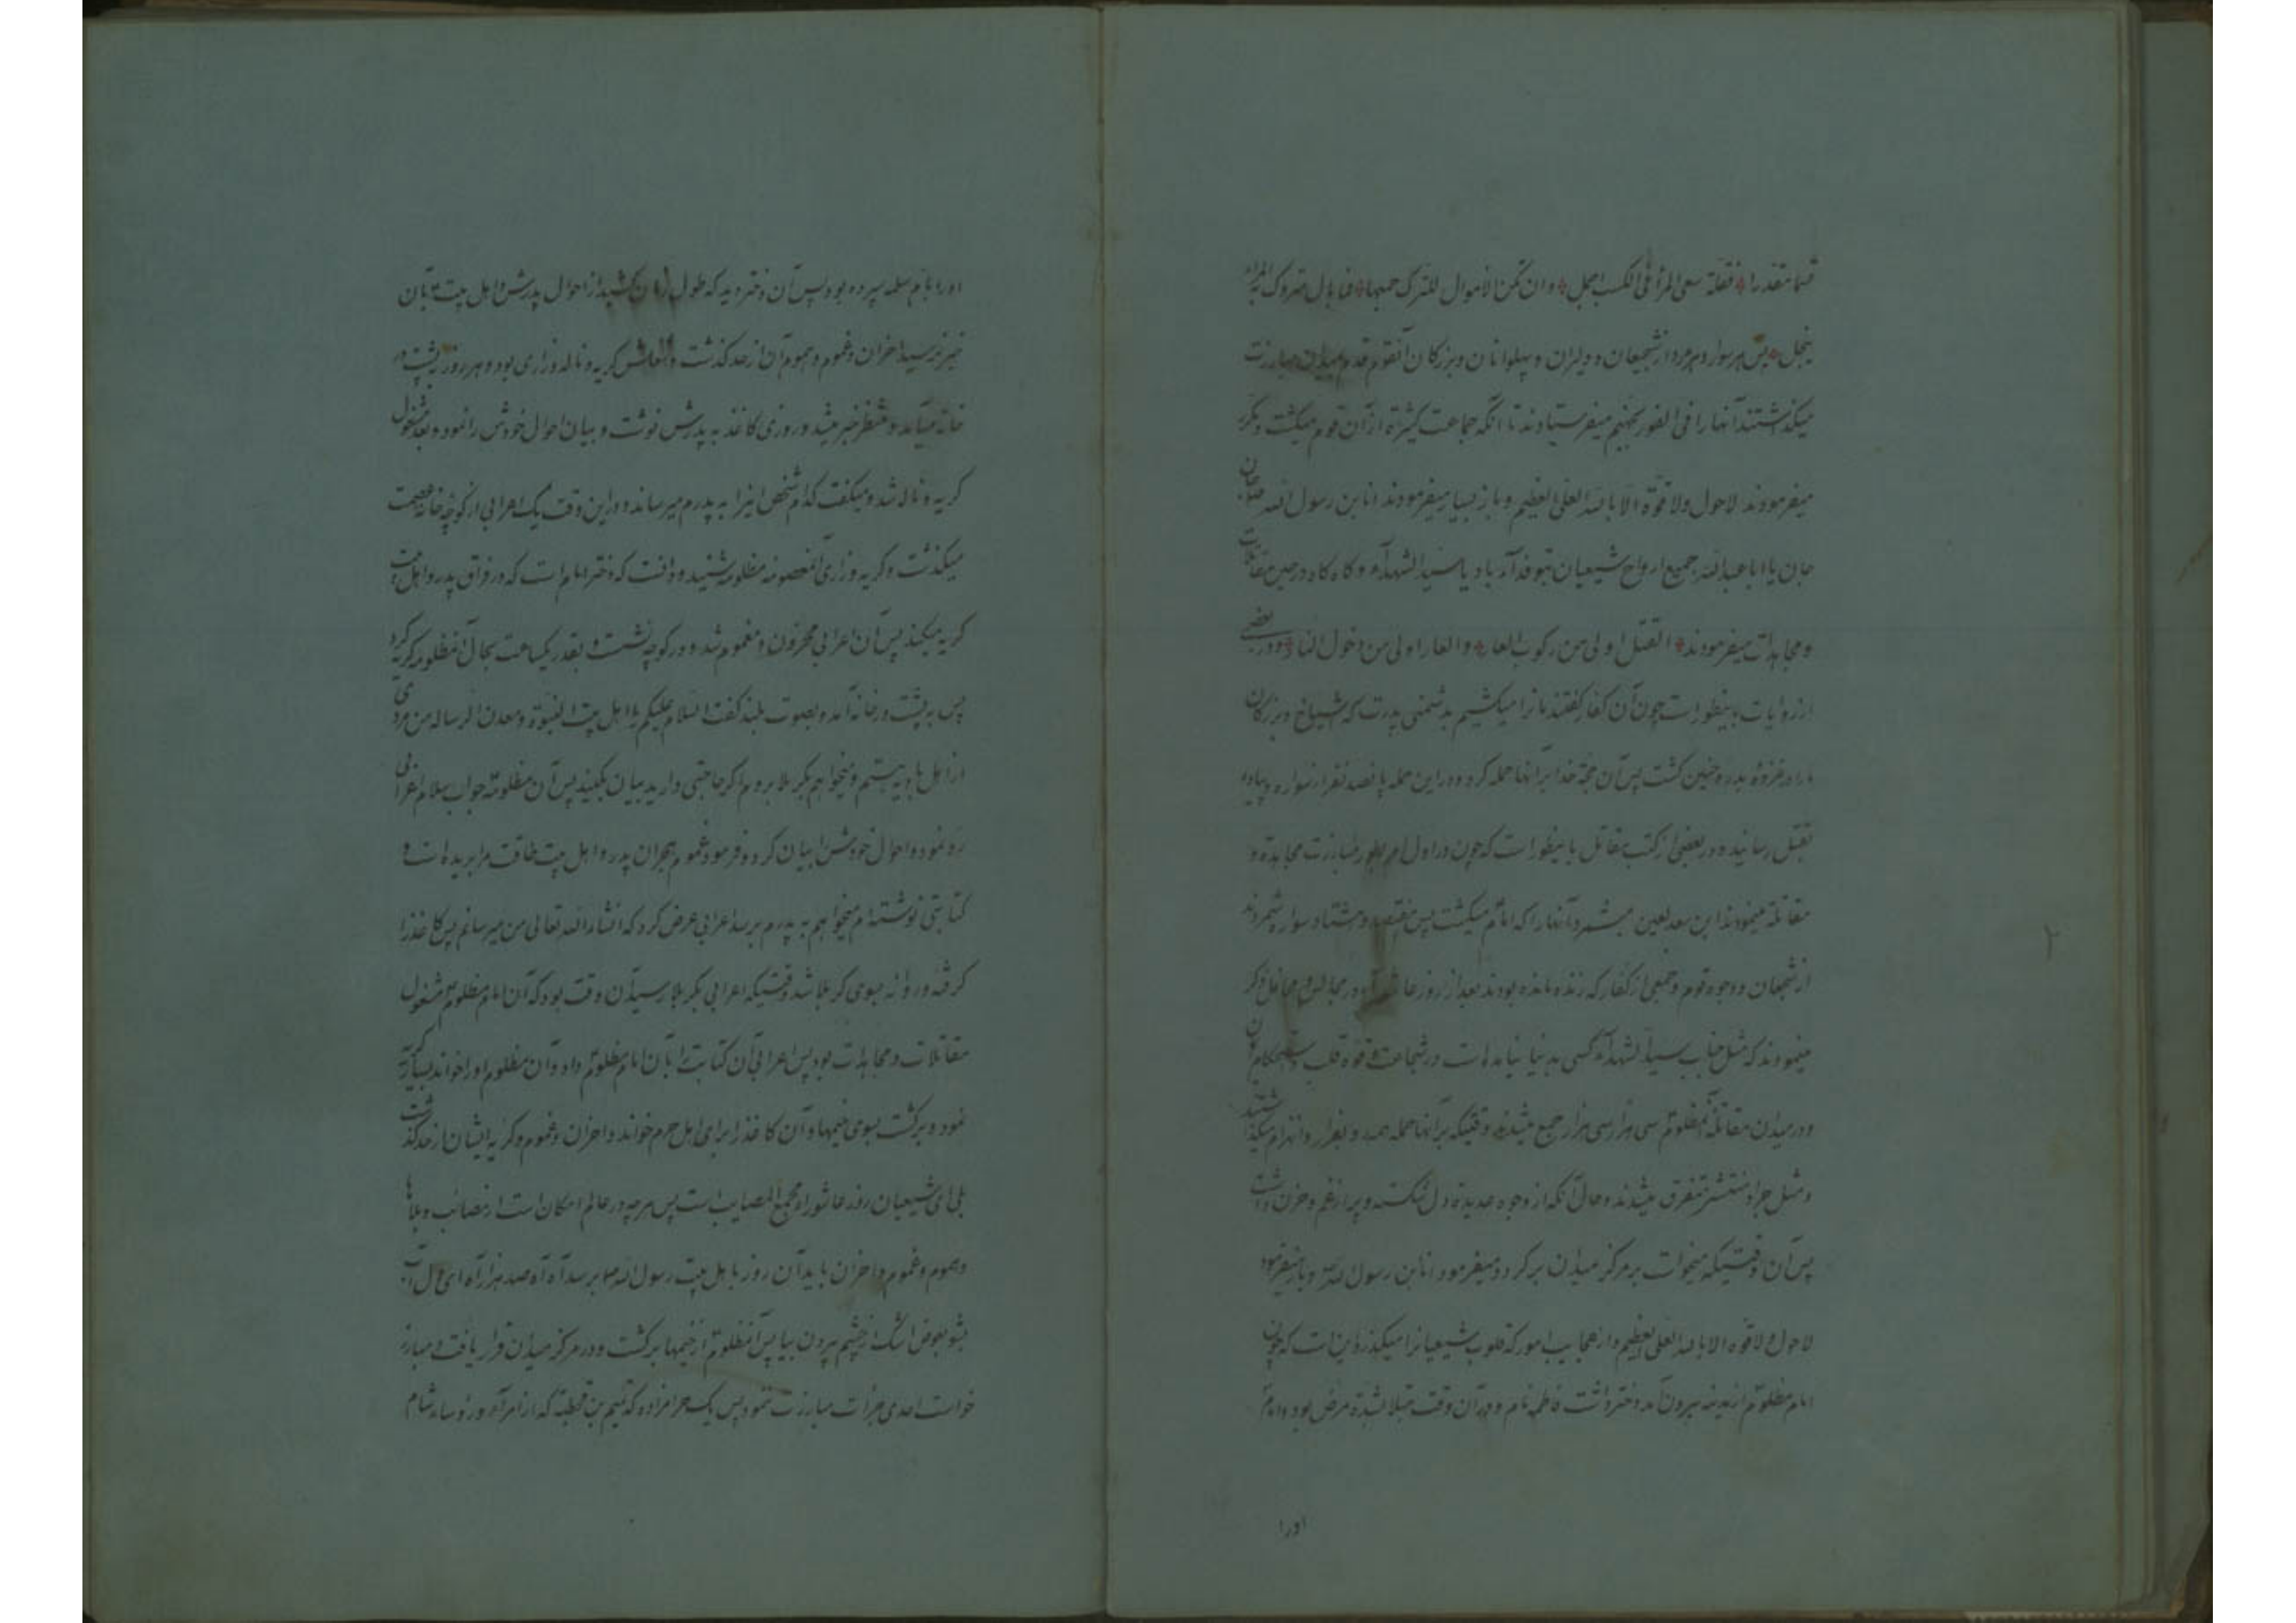 قسما مقدرا فقلة سعی المرأ فی الکسب اجمل وان تکن الاموال للترک جمعها فما بال متروک به المرأ
یبخل پس هر سوار و هر مرد از شجیعان و دلیران و پهلوانان و بزرکان آنقوم قدم بمیدان مبارزت
میکذاشتند آنها را فی الفور بجهنم میفرستادند تا آنکه جماعت کثیرة از آن قوم میکشت و مکرر
میفرمودند لاحول ولا قوة الا بالله العلی العظیم و باز بسیار میفرمودند انا بن رسول الله
جان یا ابا عبدالله جمیع ارواح شیعیان بتو فدآء باد یا سید الشهدآء و کاه کاه در حین مقاتلات
و مجاهدات میفرمودند القتل اولی من رکوب العار والعار اولی من دخول النار و در بعضی
از روایات باینطور است چون آن کفار کفتند ما ترا میکشیم بدشمنی پدرت که شیاخ و بزرکان
ما را در غزوۀ بدر و حنین کشت پس آن حجة خدا بر آنها حمله کرد و در این حمله پانصد نفر از سواره و پیاده
بقتل رسانید و در بعضی از کتب مقاتل باینطور است که چون در اول امر بطور مبارزت مجاهدة و
مقاتلة مینمودند ابن سعد لعین میشمرد آنها را که امام میکشت پس هفتصد و هشتاد سواره شمردند
از شجعان و وجوه قوم و جمعی از کفار که زنده مانده بودند بعد از روز عاشورآء در مجالس و محافل ذکر
مینمودند که مثل جناب سید الشهدآء کسی بدنیا نیامده است در شجاعت و قوة قلب و استحکام آن
و در میدان مقاتلۀ آنمظلوم سی هزار سی هزار جمع میشدند وقتیکه بر آنها حمله میبرد و بفرار و انهزام میکذاشتند
و مثل جراد منتشر متفرق میشدند و حال آنکه از وجوه عدیدة دل شکسته و پر از غم و حزن داشت
پس آن وقتیکه میخواست بر مرکز میدان برکردد میفرمود انا بن رسول الله و باز میفرمود
لاحول ولا قوه الا بالله العلی العظیم و از عجایب امور که قلوب شیعیانرا میکذرد این است که چون
امام مظلوم از مدینه بیرون آمد دختر داشت فاطمه نام و در آن وقت مبتلا بشدة مرض بود و امام
اورا
اورا بام سلمه سپرده بود پس آن دختر دید که طول زمان کشید از احوال پدرش و اهل بیت بآن
خبر نرسید احزان و غموم و هموم آن از حد کذشت و کریه و ناله و زاری بود و هر روز به پشت در
خانه میآمد و منتظر خبر میشد و روزی کاغذ به پدرش نوشت و بیان احوال خودش را نمود و بعد مشغول
کریه و ناله شد و میکفت کدام شخص اینرا به پدرم میرساند و در این وقت یک اعرابی از کوچۀ خانه عصمت
میکذشت و کریه و زاری آنمعصومه مظلومه شنید و دانست که دختر امام است که در فراق پدر و اهل بیت
کریه میکند پس آن اعرابی محزون و مغموم شد و در کوچه نشست و بقدر یکساعت بحال آنمظلومه کریه کرد
پس به پشت در خانه آمد و بصوت بلند کفت السلام علیکم یا اهل بیت النبوة و معدن الرساله من مردی
از اهل بادیه هستم و میخواهم بکربلا بروم اکر حاجتی دارید بیان بکنید پس آن مظلومه جواب سلام اعرابی
رد نمود و احوال خودش را بیان کرد و فرمود غموم هجران پدر و اهل بیت طاقت مرا بریده است و
کتابتی نوشته ام میخواهم به پدرم برسد اعرابی عرض کرد که انشاء الله تعالی من میرسانم پس کاغذ را
کرفته و روانه بسوی کربلا شد وقتیکه اعرابی بکربلا رسید آن وقت بود که آن امام مظلوم مشغول
مقاتلات و مجاهدات بود پس اعرابی آن کتابت را بآن امام مظلوم داد و آن مظلوم اورا خواند بسیار کریه
نمود و برکشت بسوی خیمها و آن کاغذ را برای اهل حرم خواند و احزان و غموم و کریه ایشان از حد کذشت
بلی ای شیعیان روز عاشوراء مجمع المصایب است پس هر چه در عالم امکان است از مصائب و بلاها
و هموم و غموم و احزان باید آن روز باهل بیت رسول الله برسد آه آه صد هزار آه ای دل آب
شو بعوض اشک از چشم بیرون بیا پس آنمظلوم از خیمها برکشت و در مرکز میدان قرار یافت و مبارز
خواست احدی جرأت مبارزت ننمود پس یک حرامزاده که تمیم بن قحطبة که از امرآء و رؤساء شام